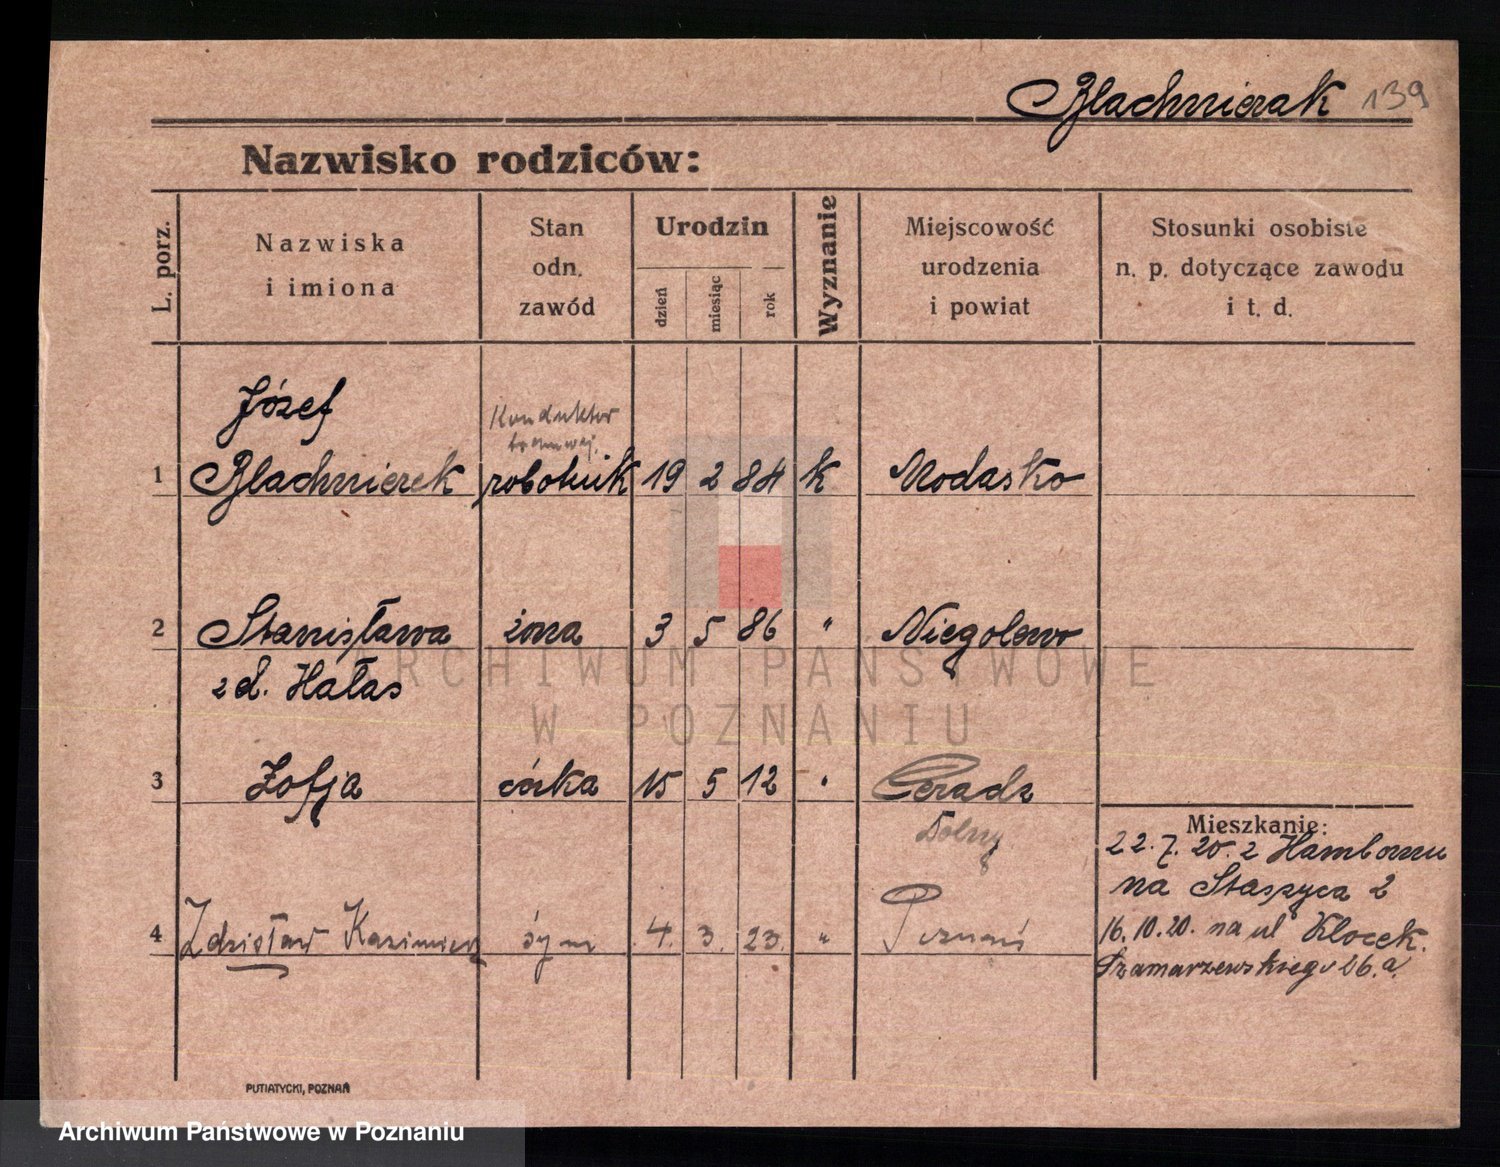 Blachnierak 139
Nazwisko rodziców:
L. porz.
Nazwiska
i imiona
Stan
odn.
zawód
Urodzin
dzień
miesiąc
rok
Wyznanie
Miejscowość
urodzenia
i powiat
Stosunki osobiste
n. p. dotyczące zawodu
i t. d.
Józef
Konduktor
tramwaj.
1 Blachnierek robotnik 19 2 84 k Modasko
2 Stanisława żona 3 5 86 " Niegolewo
z d. Hałas
3 Zofja córka 15 5 12 " Ceradz
Dolny
Mieszkanie:
22. 7. 20. z Hambornu
na Staszyca 2
4 Zdzisław Kazimierz syn 4. 3. 23. " Poznań
16. 10. 20. na ul Klocek.
Szamarzewskiego 26.a.
PUTIATYCKI, POZNAŃ
ARCHIWUM PAŃSTWOWE
W POZNANIU
Archiwum Państwowe w Poznaniu